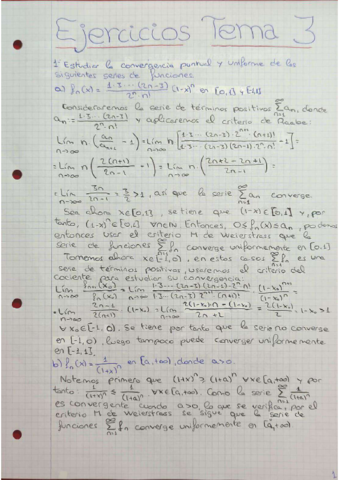 Ejercicios Tema 3
1. Estudiar la convergencia puntual y uniforme de las
siguientes series de funciones
a) fₙ(x) = 1·3···(2n-3) / 2ⁿ·n! (1-x)ⁿ en [0,1] y [-1,1]
Consideraremos la serie de términos positivos Σ aₙ, donde
aₙ = 1·3···(2n-3) / 2ⁿ·n! y aplicaremos el criterio de Raabe:
Lím n→∞ n(aₙ/aₙ₊₁ - 1) = Lím n→∞ n[1·3···(2n-3)·2ⁿ⁺¹·(n+1)! / 1·3···(2n-3)(2n-1)·2ⁿ·n! - 1] =
= Lím n→∞ n(2(n+1)/2n-1 - 1) = Lím n→∞ n(2n+2-2n+1/2n-1) =
= Lím n→∞ 3n/2n-1 = 3/2 > 1, así que la serie Σ aₙ converge.
Sea ahora x∈[0,1], se tiene que (1-x)∈[0,1] y, por
tanto, (1-x)ⁿ∈[0,1] ∀n∈ℕ. Entonces, 0≤fₙ(x)≤aₙ, podemos
entonces usar el criterio M de Weierstrass que la
serie de funciones Σ fₙ converge uniformemente en [0,1]
Tomemos ahora x∈[-1,0), en estas casos Σ fₙ es una
serie de términos positivos, usaremos el criterio del
cociente para estudiar su convergencia.
Lím n→∞ fₙ₊₁(x₀)/fₙ(x₀) = Lím n→∞ 1·3···(2n-3)(2n-1)·2ⁿ·n! / 1·3···(2n-3)·2ⁿ⁺¹·(n+1)! · (1-x₀)ⁿ⁺¹/(1-x₀)ⁿ =
= Lím n→∞ 2n-1/2(n+1) · (1-x₀) = Lím n→∞
∀x∈[-1,0). Se tiene por tanto que la serie no converge
en [-1,0), luego tampoco puede converger uniformemente
en [-1,1].
b) fₙ(x) = 1/(1+x)ⁿ en [a,+∞), donde a>0.
Notemos primero que (1+x)ⁿ ≥ (1+a)ⁿ ∀x∈[a,+∞) y por
tanto 1/(1+x)ⁿ ≤ 1/(1+a)ⁿ ∀x∈[a,+∞). Como la serie Σ 1/(1+a)ⁿ
es convergente cuando a>0, lo que se verifica, por el
criterio M de Weierstrass se sigue que la serie de
funciones Σ fₙ converge uniformemente en [a,+∞)
1